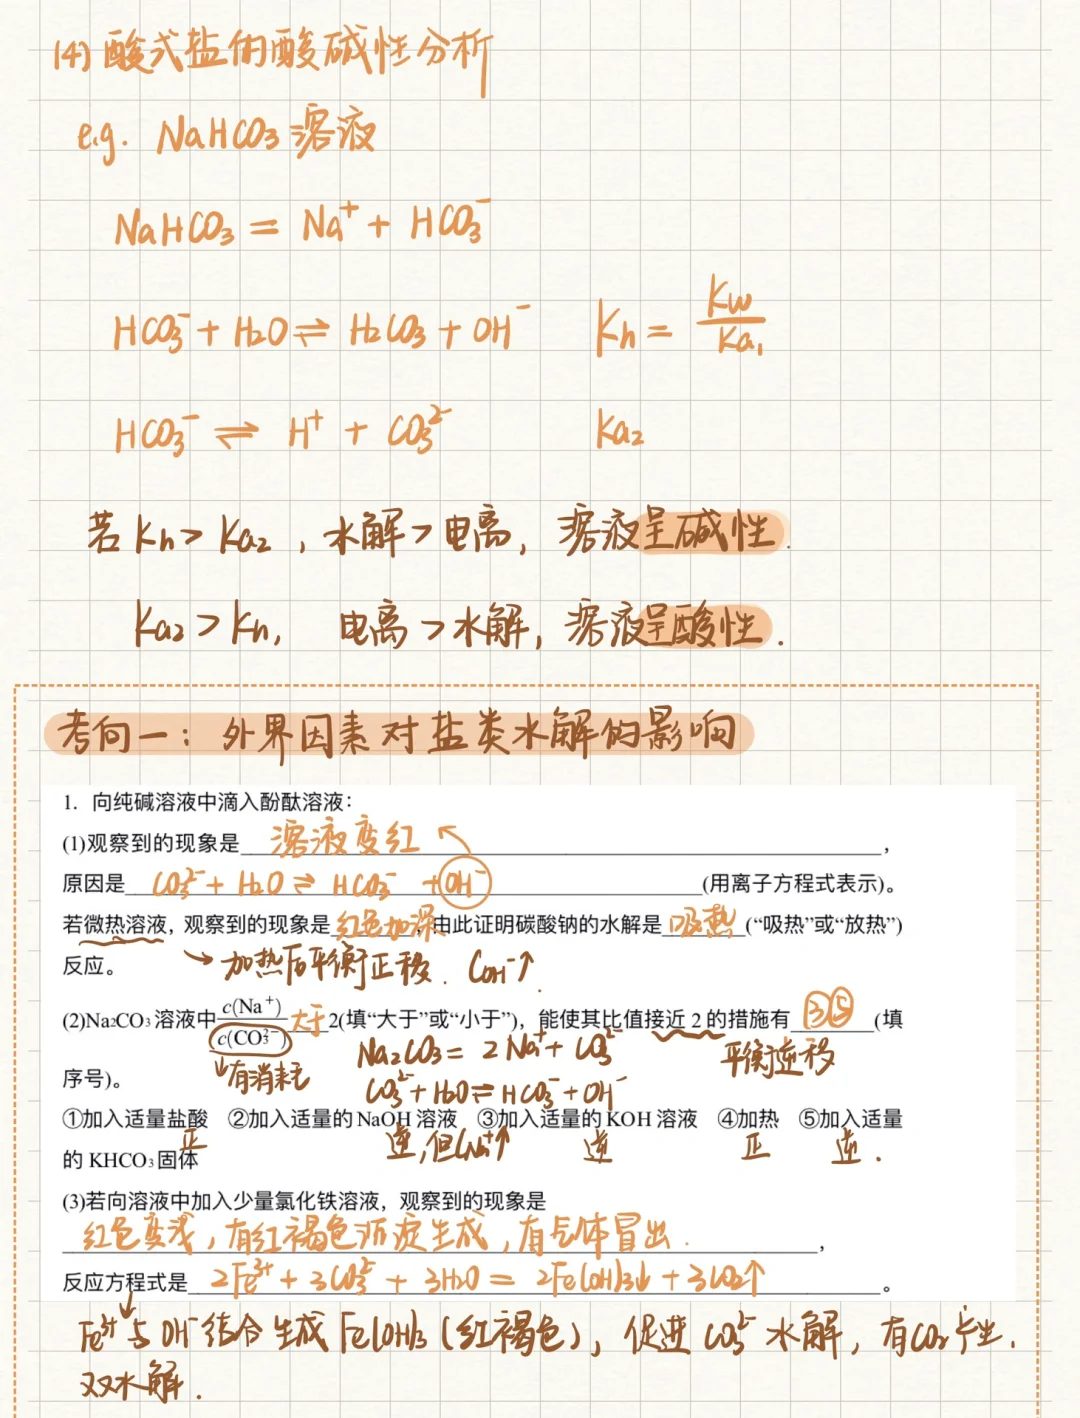 (4) 酸式盐的酸碱性分析
e.g. NaHCO₃溶液
NaHCO₃ = Na⁺ + HCO₃⁻
HCO₃⁻ + H₂O ⇌ H₂CO₃ + OH⁻ Kh = Kw/Ka₁
HCO₃⁻ ⇌ H⁺ + CO₃²⁻ Ka₂
若 Kh > Ka₂ , 水解 > 电离, 溶液呈碱性.
Ka₂ > Kh, 电离 > 水解, 溶液呈酸性.
考向一: 外界因素对盐类水解的影响
1. 向纯碱溶液中滴入酚酞溶液:
(1)观察到的现象是 溶液变红 ↖,
原因是 CO₃²⁻ + H₂O ⇌ HCO₃⁻ + OH⁻ (用离子方程式表示)。
若微热溶液, 观察到的现象是 红色加深, 由此证明碳酸钠的水解是 吸热 (“吸热”或“放热”)
反应。 → 加热后平衡正移. C_OH⁻↑.
(2)Na₂CO₃ 溶液中 c(Na⁺)/c(CO₃²⁻) 大于 2(填“大于”或“小于”), 能使其比值接近 2 的措施有 ③⑤ (填
↓有消耗 Na₂CO₃ = 2Na⁺ + CO₃²⁻ 平衡逆移
序号)。 CO₃²⁻ + H₂O ⇌ HCO₃⁻ + OH⁻
①加入适量盐酸 ②加入适量的 NaOH 溶液 ③加入适量的 KOH 溶液 ④加热 ⑤加入适量
正 逆, 但C_Na⁺↑ 逆 正 逆.
的 KHCO₃ 固体
(3)若向溶液中加入少量氯化铁溶液, 观察到的现象是
红色变浅, 有红褐色沉淀生成, 有气体冒出. ,
反应方程式是 2Fe³⁺ + 3CO₃²⁻ + 3H₂O = 2Fe(OH)₃↓ + 3CO₂↑ 。
↓ Fe³⁺与OH⁻结合生成Fe(OH)₃ (红褐色), 促进CO₃²⁻水解, 有CO₂产生.
双水解.